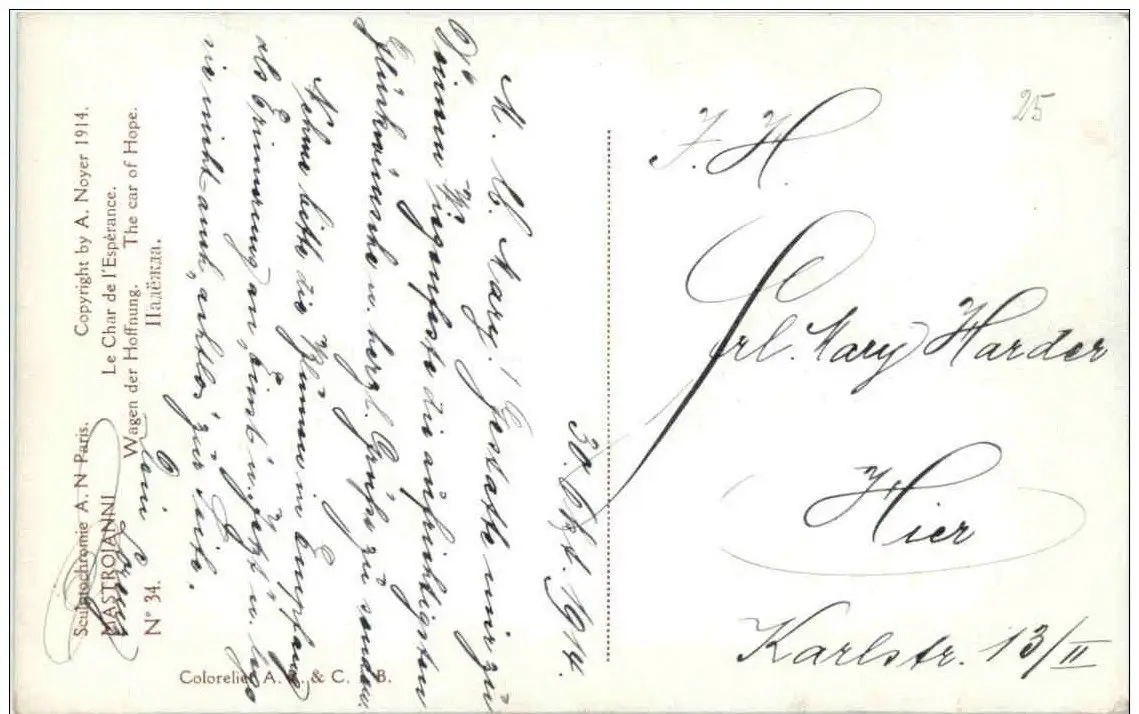 Sculptochromie A. N Paris. Copyright by A. Noyer 1914.
MASTROJANNI Le Char de l'Espérance.
Wagen der Hoffnung. The car of Hope.
N° 34. Надежда.
30. Okt. 1914.
M. l. Mary! Gestatte mir zu
Deinem Wiegenfeste die aufrichtigsten
Glückwünsche u. herzl. Grüße zu senden.
Nehme bitte die Blumen in Empfang
als Erinnerung an „einst" u. „jetzt" u. lege
sie nicht auch „achtlos" zur Seite.
Dein
Colorelief A. & C. B.
25
I. H.
Frl. Mary Harder
Hier
Karlstr. 13/II